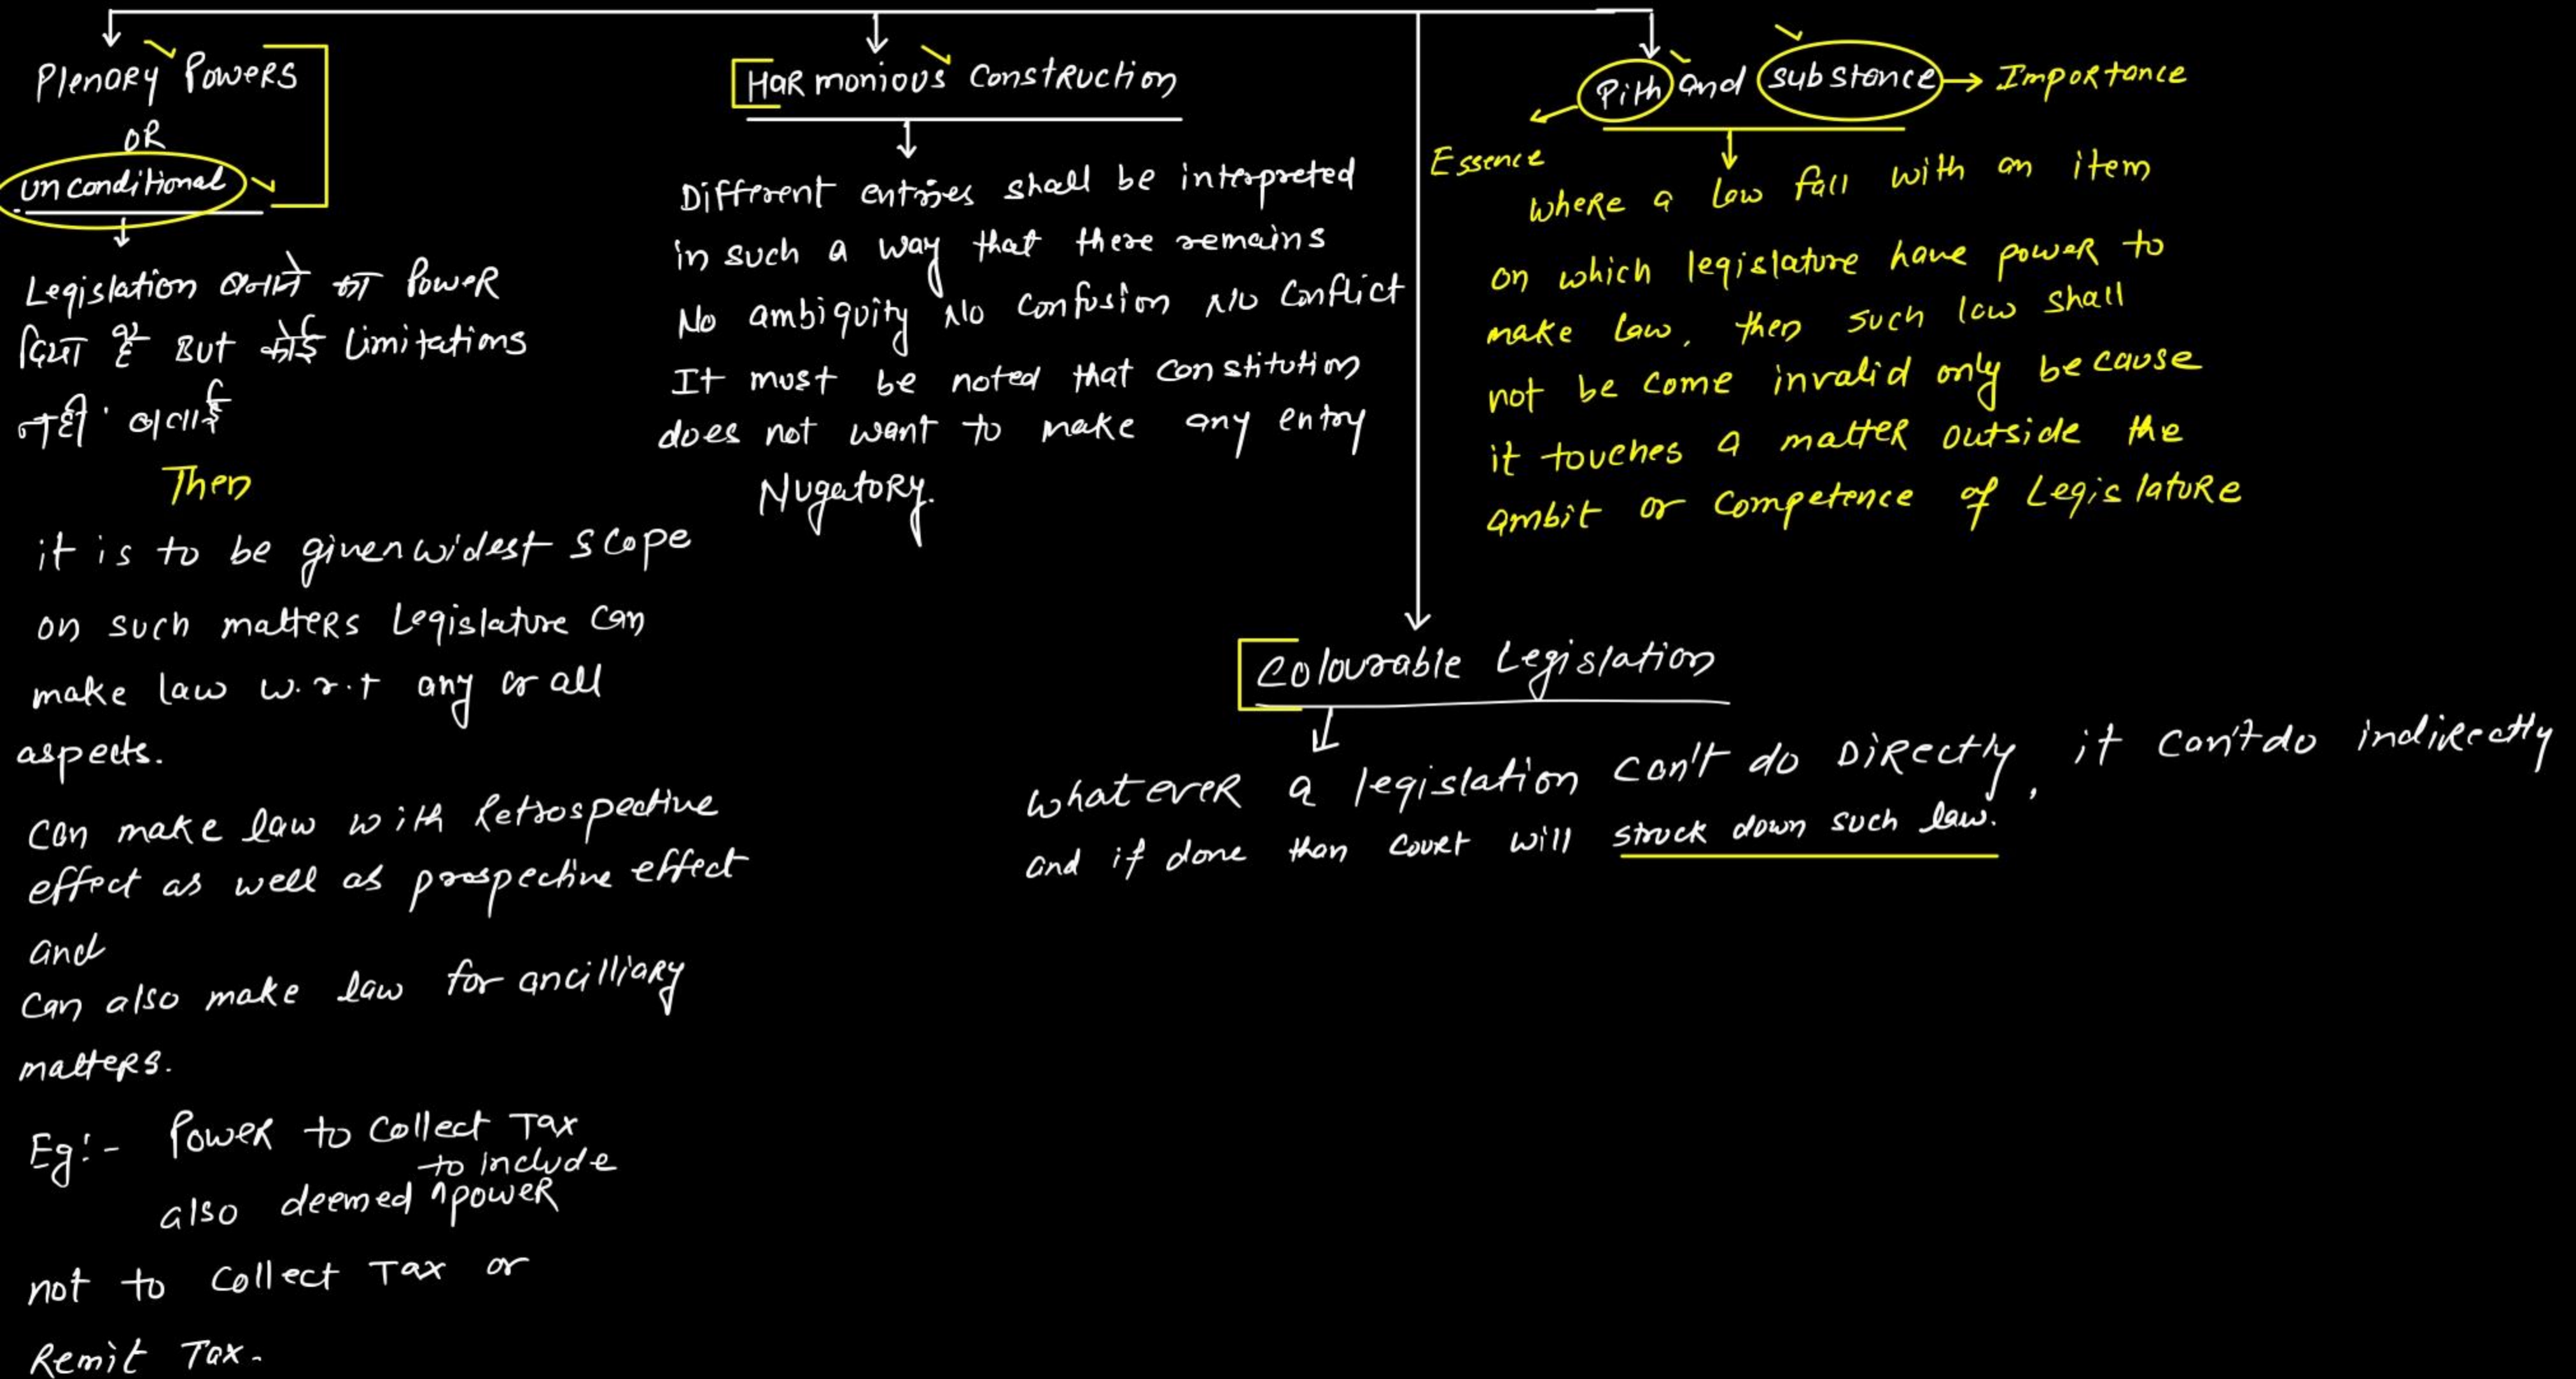 Plenary Powers
OR
unconditional
Legislation बनाने का Power
दिया है But कोई limitations
नहीं बताई
Then
it is to be given widest scope
on such matters Legislature can
make law w.r.t any or all
aspects.
can make law with Retrospective
effect as well as prospective effect
and
can also make law for ancilliary
matters.
Eg:- Power to collect Tax
to include
also deemed ^power
not to collect Tax or
Remit Tax.
Harmonious Construction
Different entries shall be interpreted
in such a way that there remains
No ambiguity No confusion No Conflict
It must be noted that constitution
does not want to make any entry
Nugatory.
Pith and substance → Importance
Essence
where a law fall with an item
on which legislature have power to
make law, then such law shall
not be come invalid only because
it touches a matter outside the
ambit or competence of Legislature
Colourable Legislation
whatever a legislation can't do Directly, it can't do indirectly
and if done than court will struck down such law.